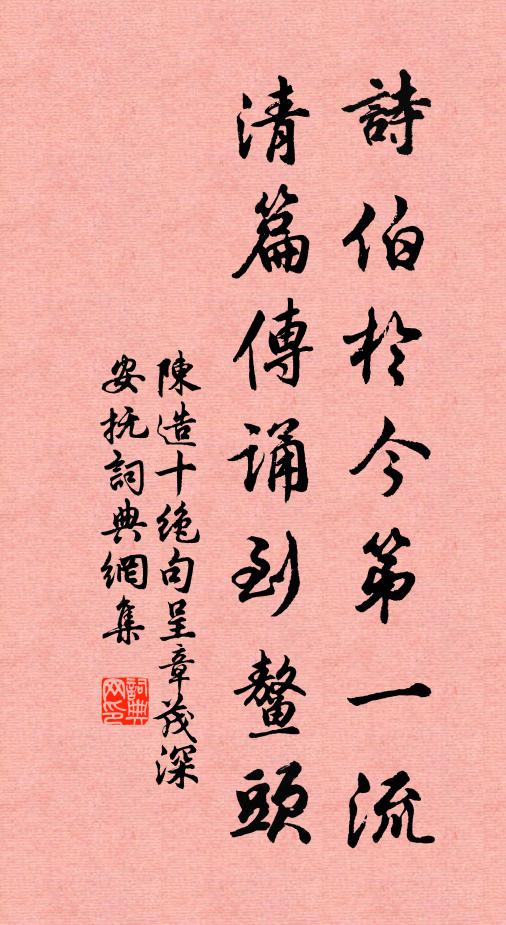 詩伯於今第一流
清篇傳誦到鰲頭
陳造十絶句呈章茂深
安撫詞典網集
詞典網印